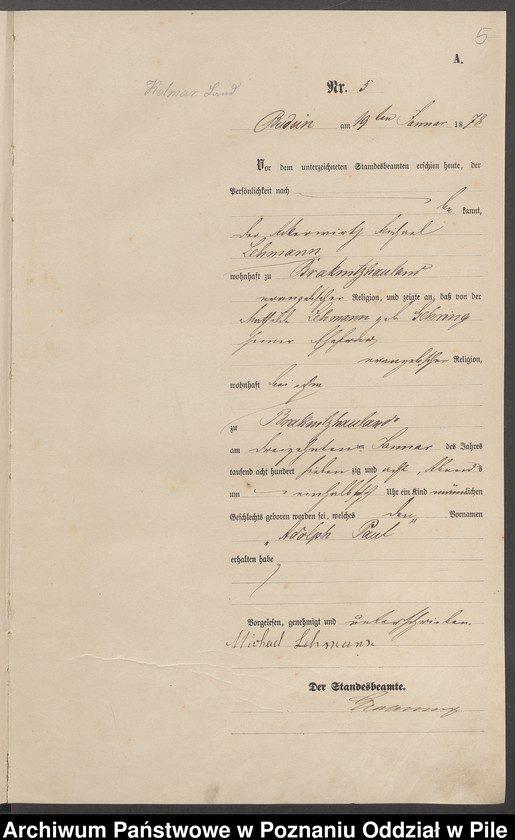 5
A.
Kolmar Land
Nr. 5
Budsin am 19ten Januar 1878
Vor dem unterzeichneten Standesbeamten erschien heute, der
Persönlichkeit nach
be kannt,
der Ackerwirth Michael
Lehmann
wohnhaft zu
evangelischer Religion, und zeigte an, daß von der
Lehmann geb. Gehring
seiner Ehefrau,
evangelischer Religion,
wohnhaft bei ihm
zu
am dreizehnten Januar des Jahres
tausend acht hundert sieben zig und acht, Abends
um Uhr ein Kind männlichen
Geschlechts geboren worden sei, welches den Vornamen
Adolph Paul
erhalten habe
Vorgelesen, genehmigt und unterschrieben.
Michael Lehmann
Der Standesbeamte.
Archiwum Państwowe w Poznaniu Oddział w Pile